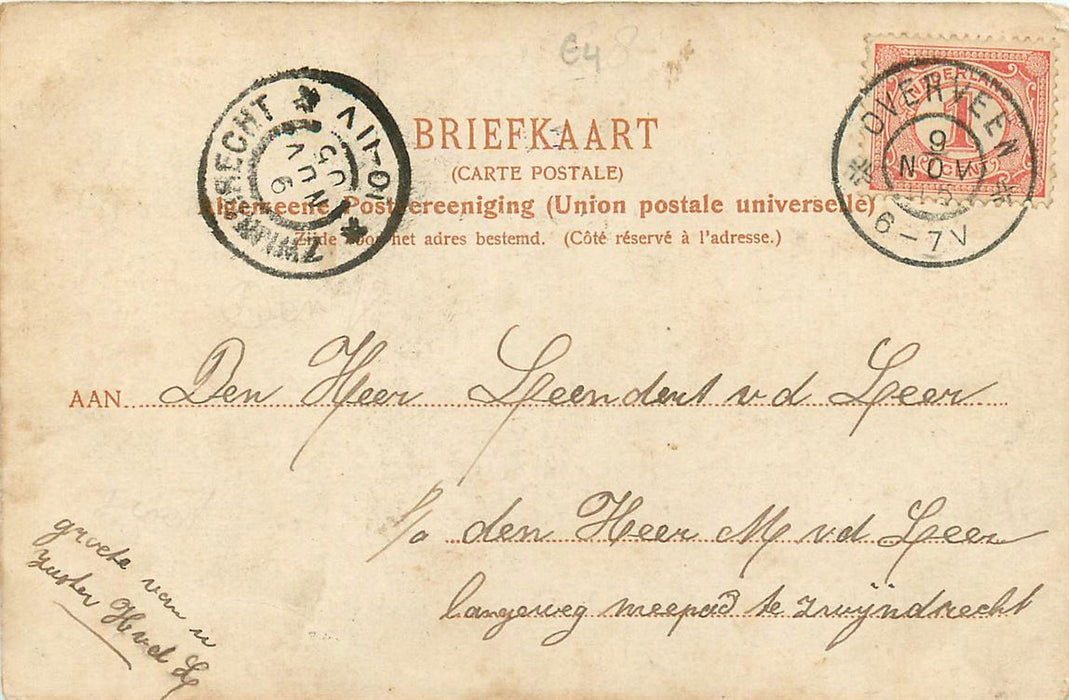 E4
BRIEFKAART
(CARTE POSTALE)
Algemeene Postvereeniging (Union postale universelle)
Zijde voor het adres bestemd. (Côté réservé à l'adresse.)
NEDERLAND
1
CENT
OVERVEEN
9
NOV
6-7V
ZWIJNDRECHT
9
NOV
05
10-11V
AAN Den Heer Leendert v d Leer
p/a den Heer M v d Leer
langeweg meepad te zwijndrecht
groete van u
zuster H v d L